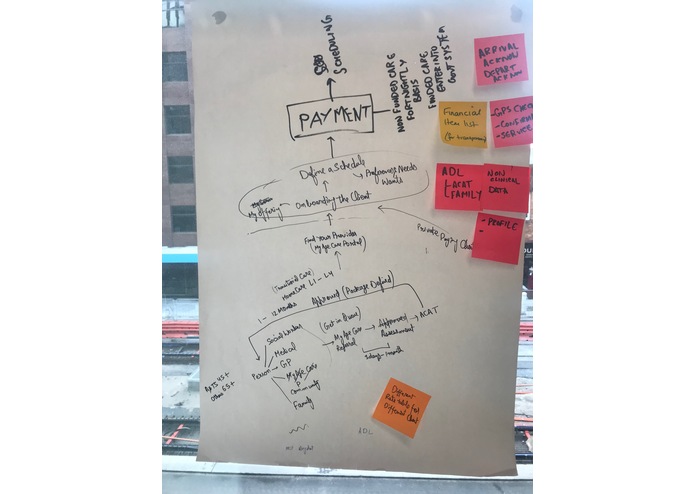 SCHEDULING
PAYMENT
NON FUNDED CARE
FORTNIGHTLY
BASIS
FUNDED CARE
ENTER INTO
GOVT SYSTEM
ARRIVAL
ACKNOW
DEPART
ACKNOW
Financial
item list
(for transparency)
-GPS CHECK
-CONFIRM
-SERVICE
ADL
ACAT
FAMILY
NON
CLINICAL
DATA
- PROFILE
-
Define a Schedule
Preferences Needs
Wants
Onboarding the Client
My Offering
Find your Provider
(My Age Care Portal)
Private Paying Client
(Transitional Care)
Home Care L1 - L4
1 -
12 Months
Approved (Package Defined)
Social Worker
Medical
Person - GP
My Age Care
P
Community
Family
(Get in Queue)
My Age Care
Referral
Approved
Assessment
ACAT
Different
Rate table for
Different Client
ADL